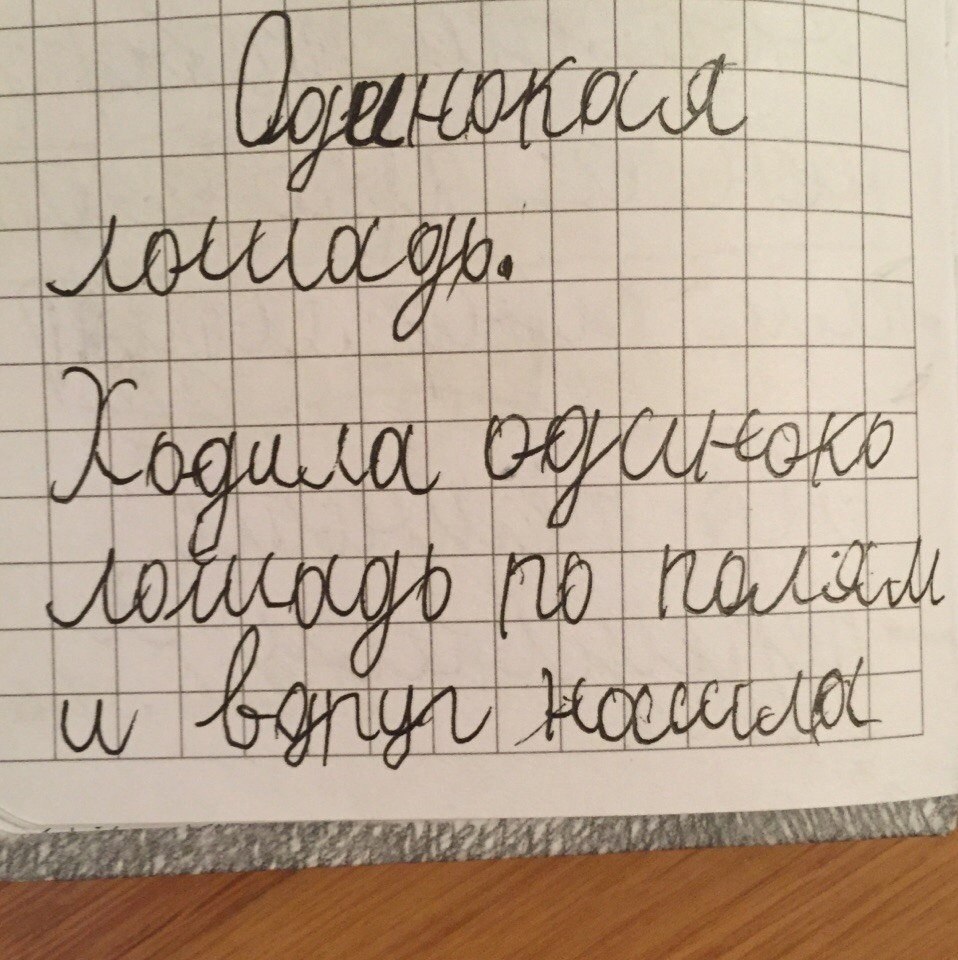 Одинокая
лошадь.
Ходила одиноко
лошадь по полям
и вдруг нашла